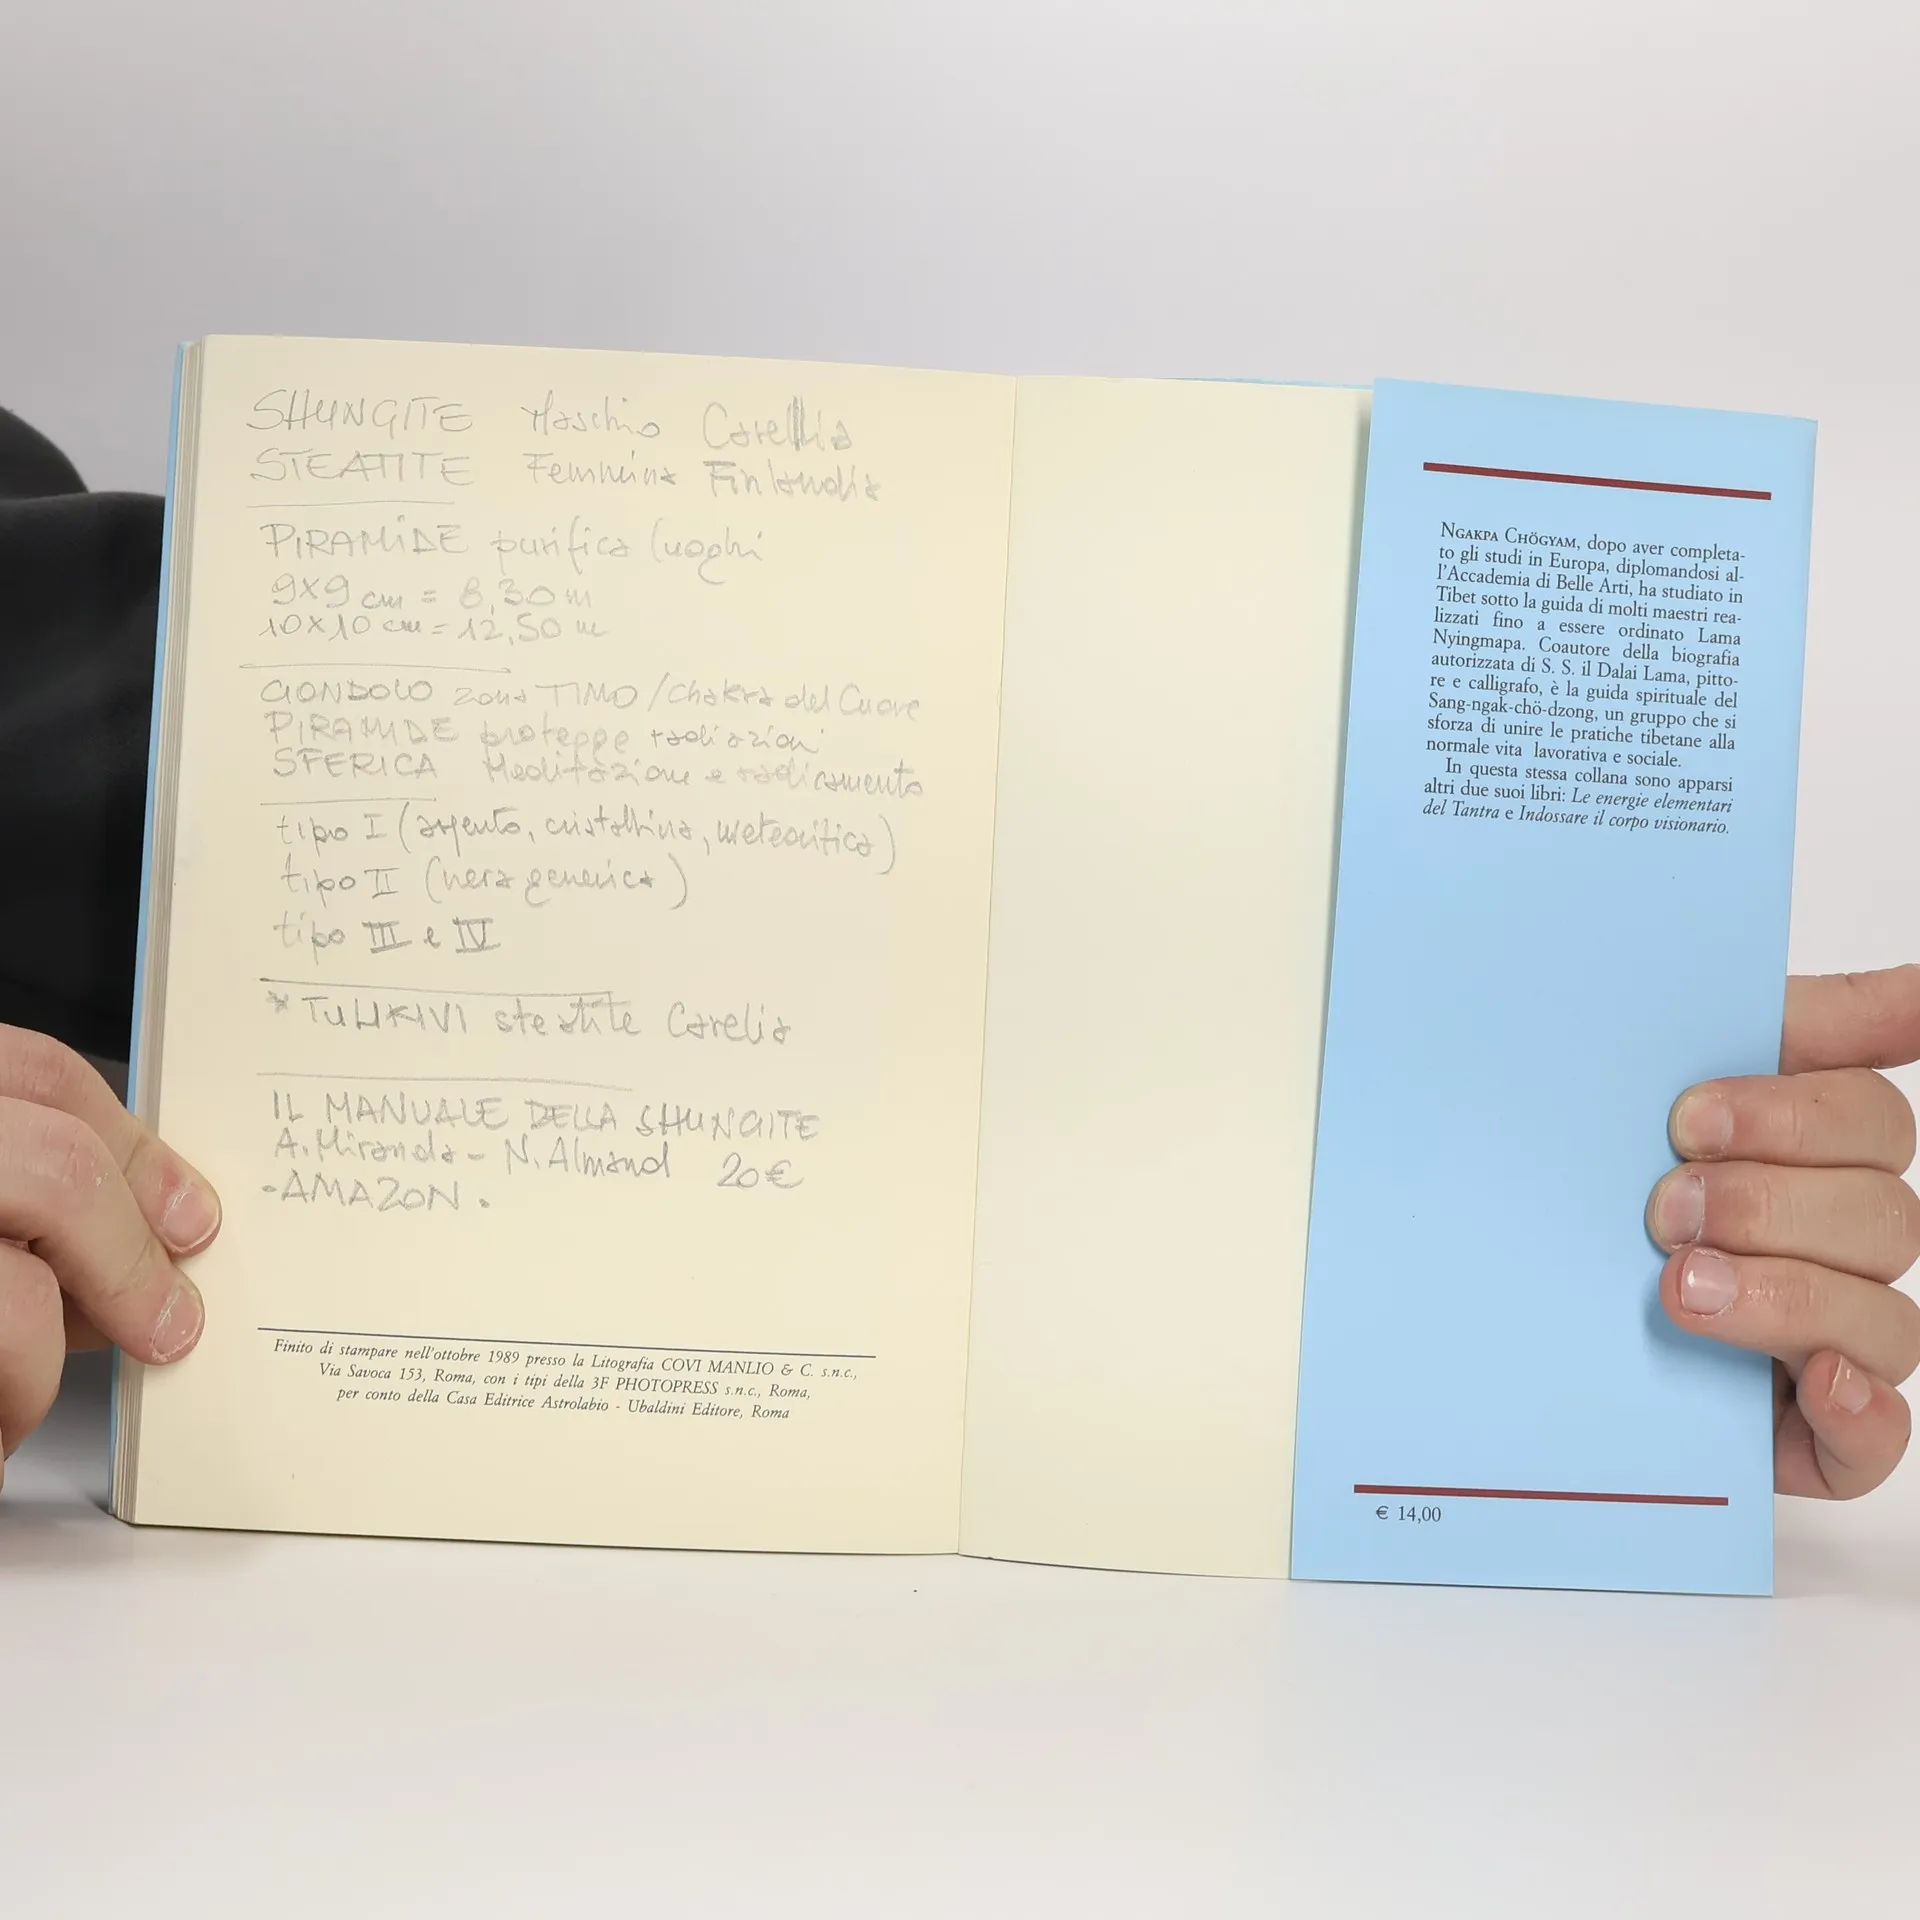 SHUNGITE Maschio Carellia
STEATITE Femmina Finlandia
PIRAMIDE purifica luoghi
9x9 cm = 8,30 m
10x10 cm = 12,50 m
CIONDOLO zona TIMO / Chakra del Cuore
PIRAMIDE protegge radiazioni
SFERICA Meditazione e radicamento
tipo I (argento, cristallina, meteoritica)
tipo II (nera generica)
tipo III e IV
* TULIKIVI steatite Carelia
IL MANUALE DELLA SHUNGITE
A. Miranda - N. Almand 20€
- AMAZON.
Finito di stampare nell'ottobre 1989 presso la Litografia COVI MANLIO & C. s.n.c.,
Via Savoca 153, Roma, con i tipi della 3F PHOTOPRESS s.n.c., Roma,
per conto della Casa Editrice Astrolabio - Ubaldini Editore, Roma
NGAKPA CHÖGYAM, dopo aver completa-
to gli studi in Europa, diplomandosi al-
l'Accademia di Belle Arti, ha studiato in
Tibet sotto la guida di molti maestri rea-
lizzati fino a essere ordinato Lama
Nyingmapa. Coautore della biografia
autorizzata di S. S. il Dalai Lama, pitto-
re e calligrafo, è la guida spirituale del
Sang-ngak-chö-dzong, un gruppo che si
sforza di unire le pratiche tibetane alla
normale vita lavorativa e sociale.
In questa stessa collana sono apparsi
altri due suoi libri: Le energie elementari
del Tantra e Indossare il corpo visionario.
€ 14,00